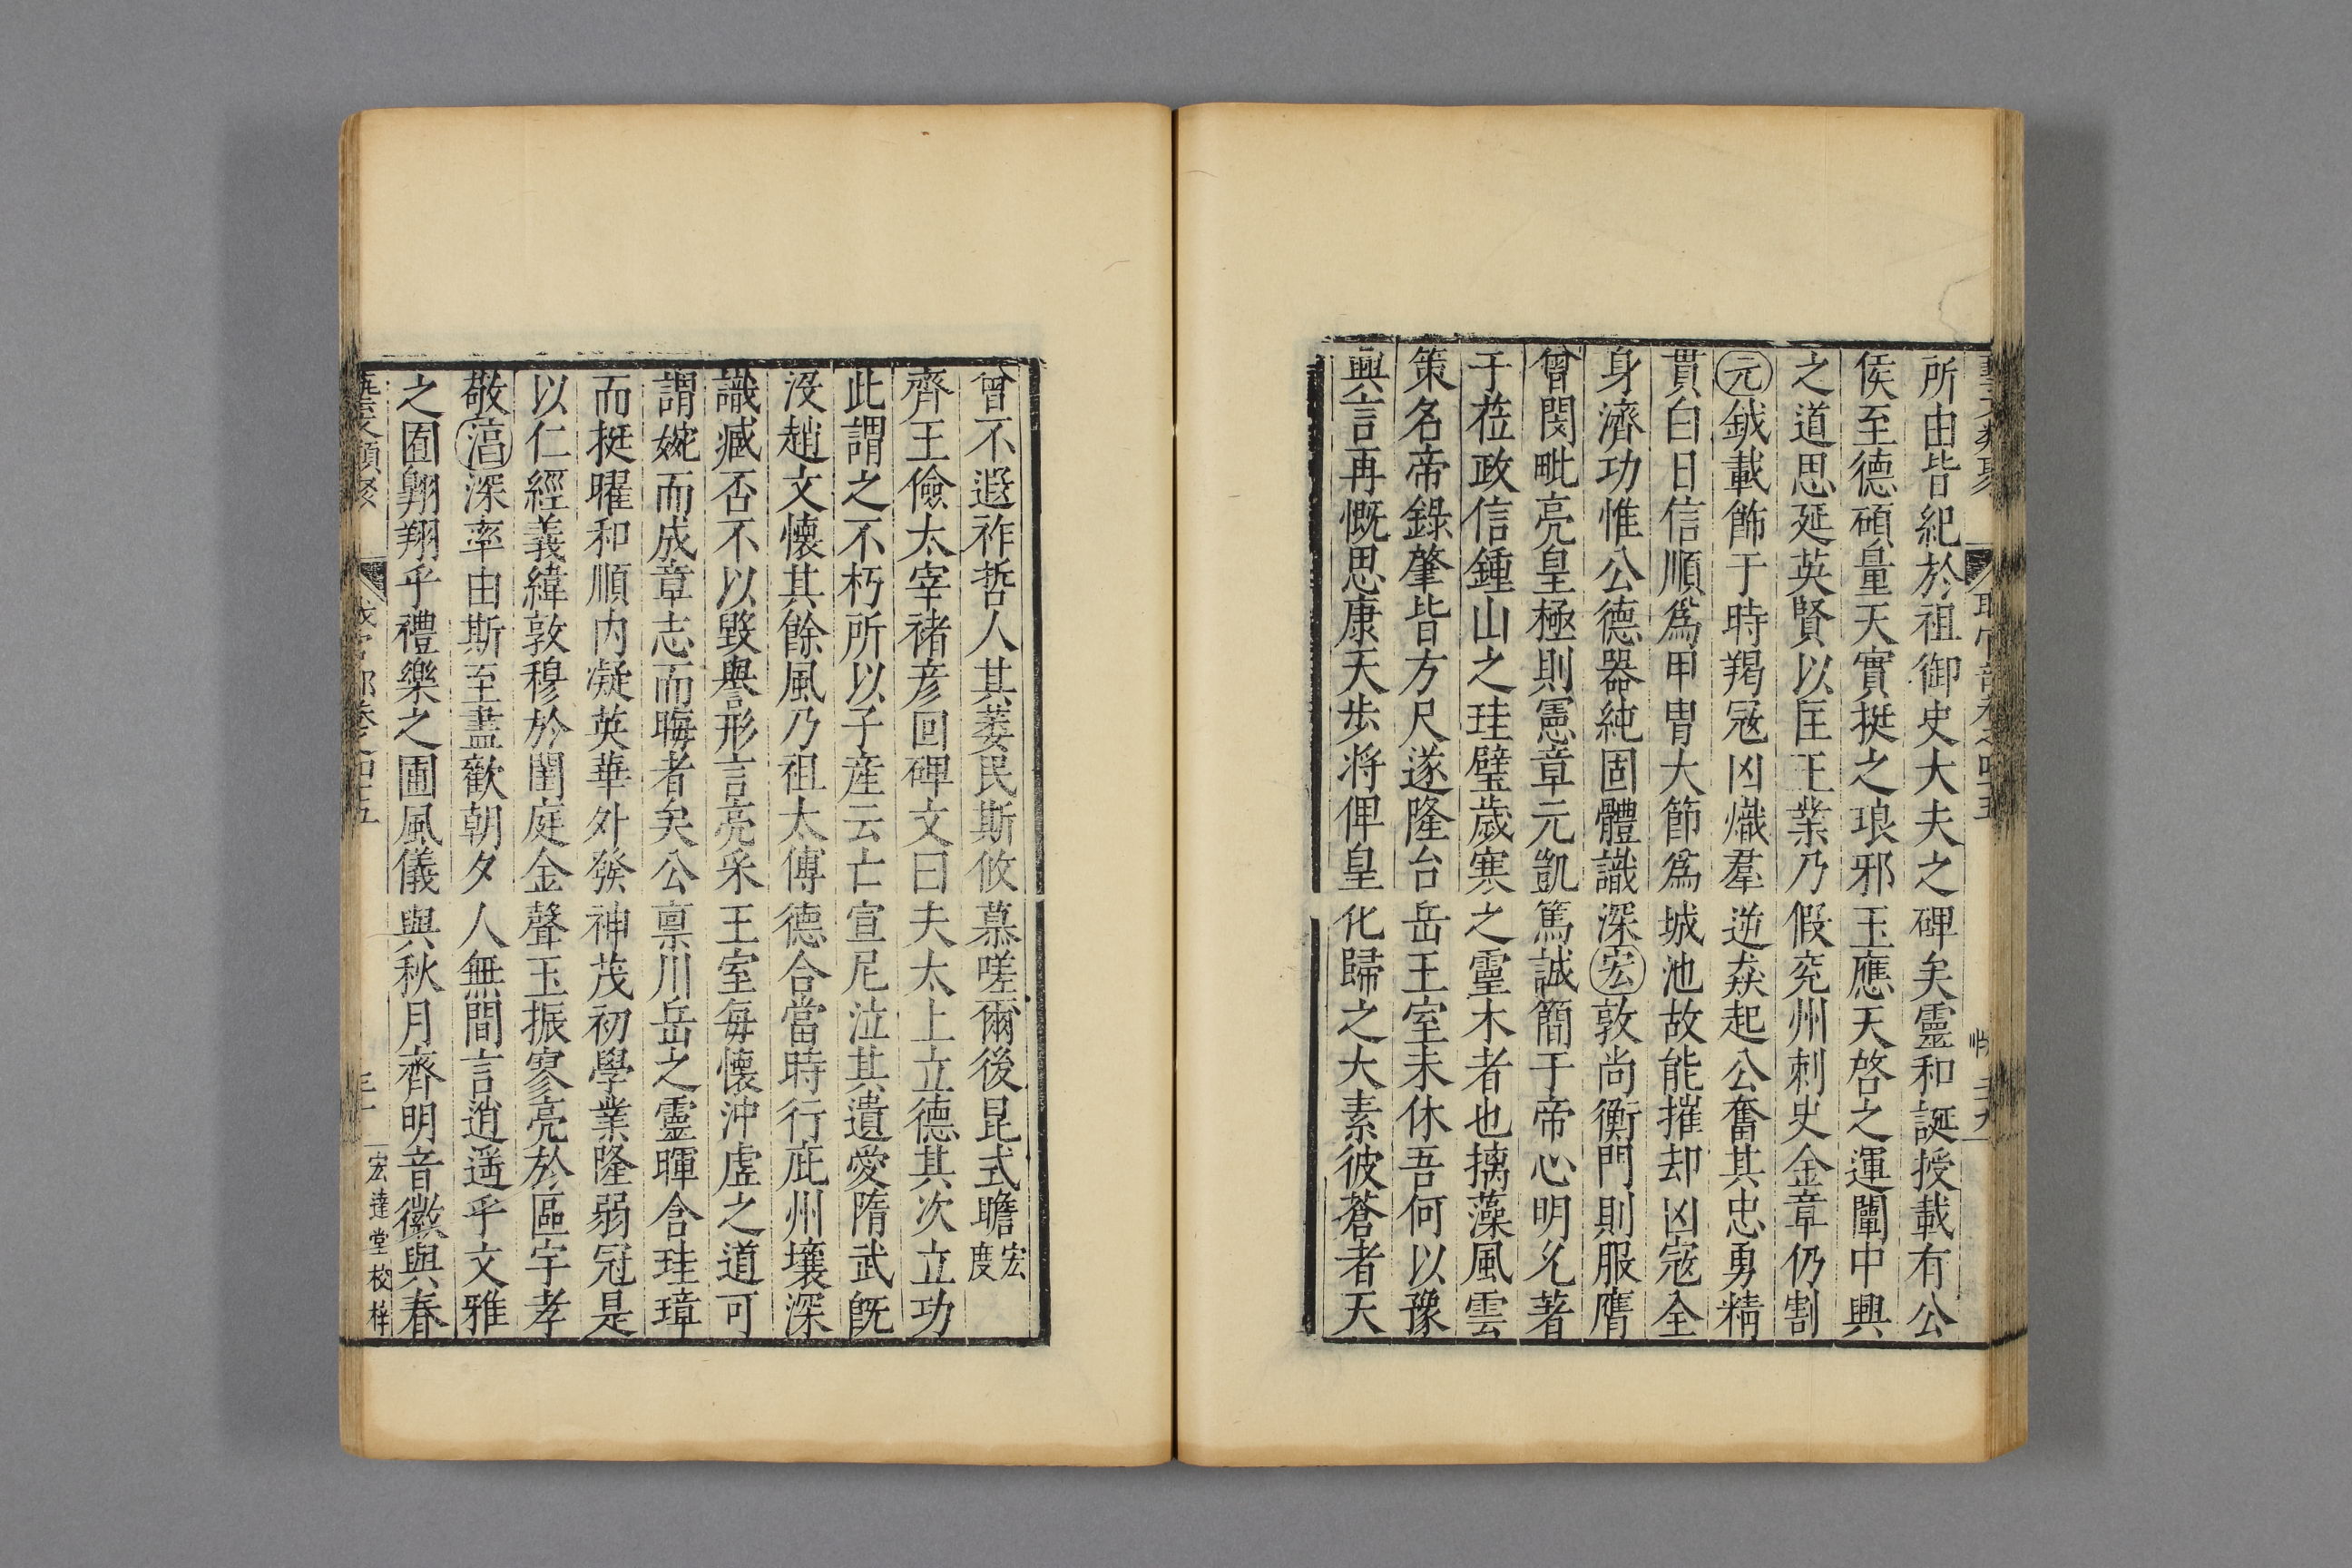 所由皆紀於祖御史大夫之碑矣靈和誕授載有公
侯至德碩量天實挺之琅邪王應天啓之運闡中興
之道思延英賢以匡王業乃假兖州刺史金章仍割
元鉞載飾于時羯寇凶熾羣逆猋起公奮其忠勇精
貫白日信順爲甲冑大節爲城池故能摧却凶寇全
身濟功惟公德器純固體識深宏敦尚衡門則服膺
曾閔毗亮皇極則憲章元凱篤誠簡于帝心明允著
于莅政信鍾山之珪璧歲寒之靈木者也摛藻風雲
策名帝錄肇皆方尺遂隆台岳王室未休吾何以豫
興言再慨思康天步將俾皇化歸之大素彼蒼者天
曾不遐祚哲人其萎民斯攸慕嗟爾後昆式瞻宏度
齊王儉太宰褚彦回碑文曰夫太上立德其次立功
此謂之不朽所以子産云亡宣尼泣其遺愛隋武旣
沒趙文懷其餘風乃祖太傅德合當時行庇州壤深
識臧否不以毀譽形言亮采王室每懷沖虛之道可
謂婉而成章志而晦者矣公禀川岳之靈暉含珪璋
而挺曜和順内凝英華外發神茂初學業隆弱冠是
以仁經義緯敦穆於閨庭金聲玉振寥亮於區宇孝
敬淳深率由斯至盡歡朝夕人無間言逍遥乎文雅
之囿翺翔乎禮樂之圃風儀與秋月齊明音徽與春
宏達堂校梓